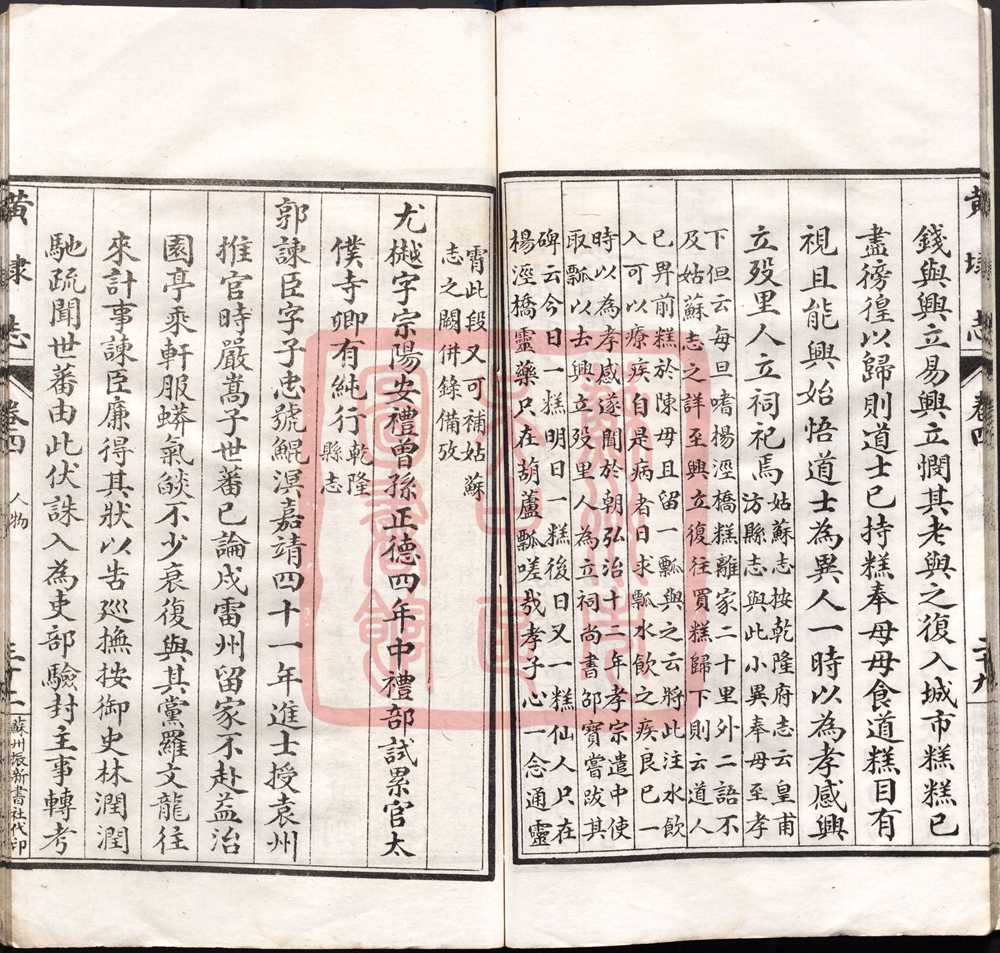 黃埭志 卷四 二十九
錢與興立易興立憫其老與之復入城市糕糕已
盡徬徨以歸則道士已持糕奉母母食道糕目有
視且能興始悟道士為異人一時以為孝感興
立歿里人立祠祀焉
姑蘇志按乾隆府志云皇甫
汸縣志與此小異奉母至孝
下但云每旦嗜楊涇橋糕離家二十里外二語不
及姑蘇志之詳至興立復往買糕歸下則云道人
已畀前糕於陳母且留一瓢與之云將此注水飲
入可以療疾自是病者日求瓢水飲之疾良已一
時以為孝感遂聞於朝弘治十二年孝宗遣中使
取瓢以去興立歿里人為立祠尚書邵寶嘗跋其
碑云今日一糕明日一糕後日又一糕仙人只在
楊涇橋靈藥只在葫蘆瓢嗟哉孝子心一念通靈
霄此段又可補姑蘇
志之闕併錄備攷
尤樾字宗陽安禮曾孫正德四年中禮部試累官太
僕寺卿有純行
乾隆
縣志
郭諫臣字子忠號鯤溟嘉靖四十一年進士授袁州
推官時嚴嵩子世蕃已論戍雷州留家不赴益治
園亭乘軒服蟒氣燄不少衰復與其黨羅文龍往
來計事諫臣廉得其狀以告巡撫按御史林潤潤
馳疏聞世蕃由此伏誅入為吏部驗封主事轉考
黃埭志 卷四 人物 三十二 蘇州振新書社代印